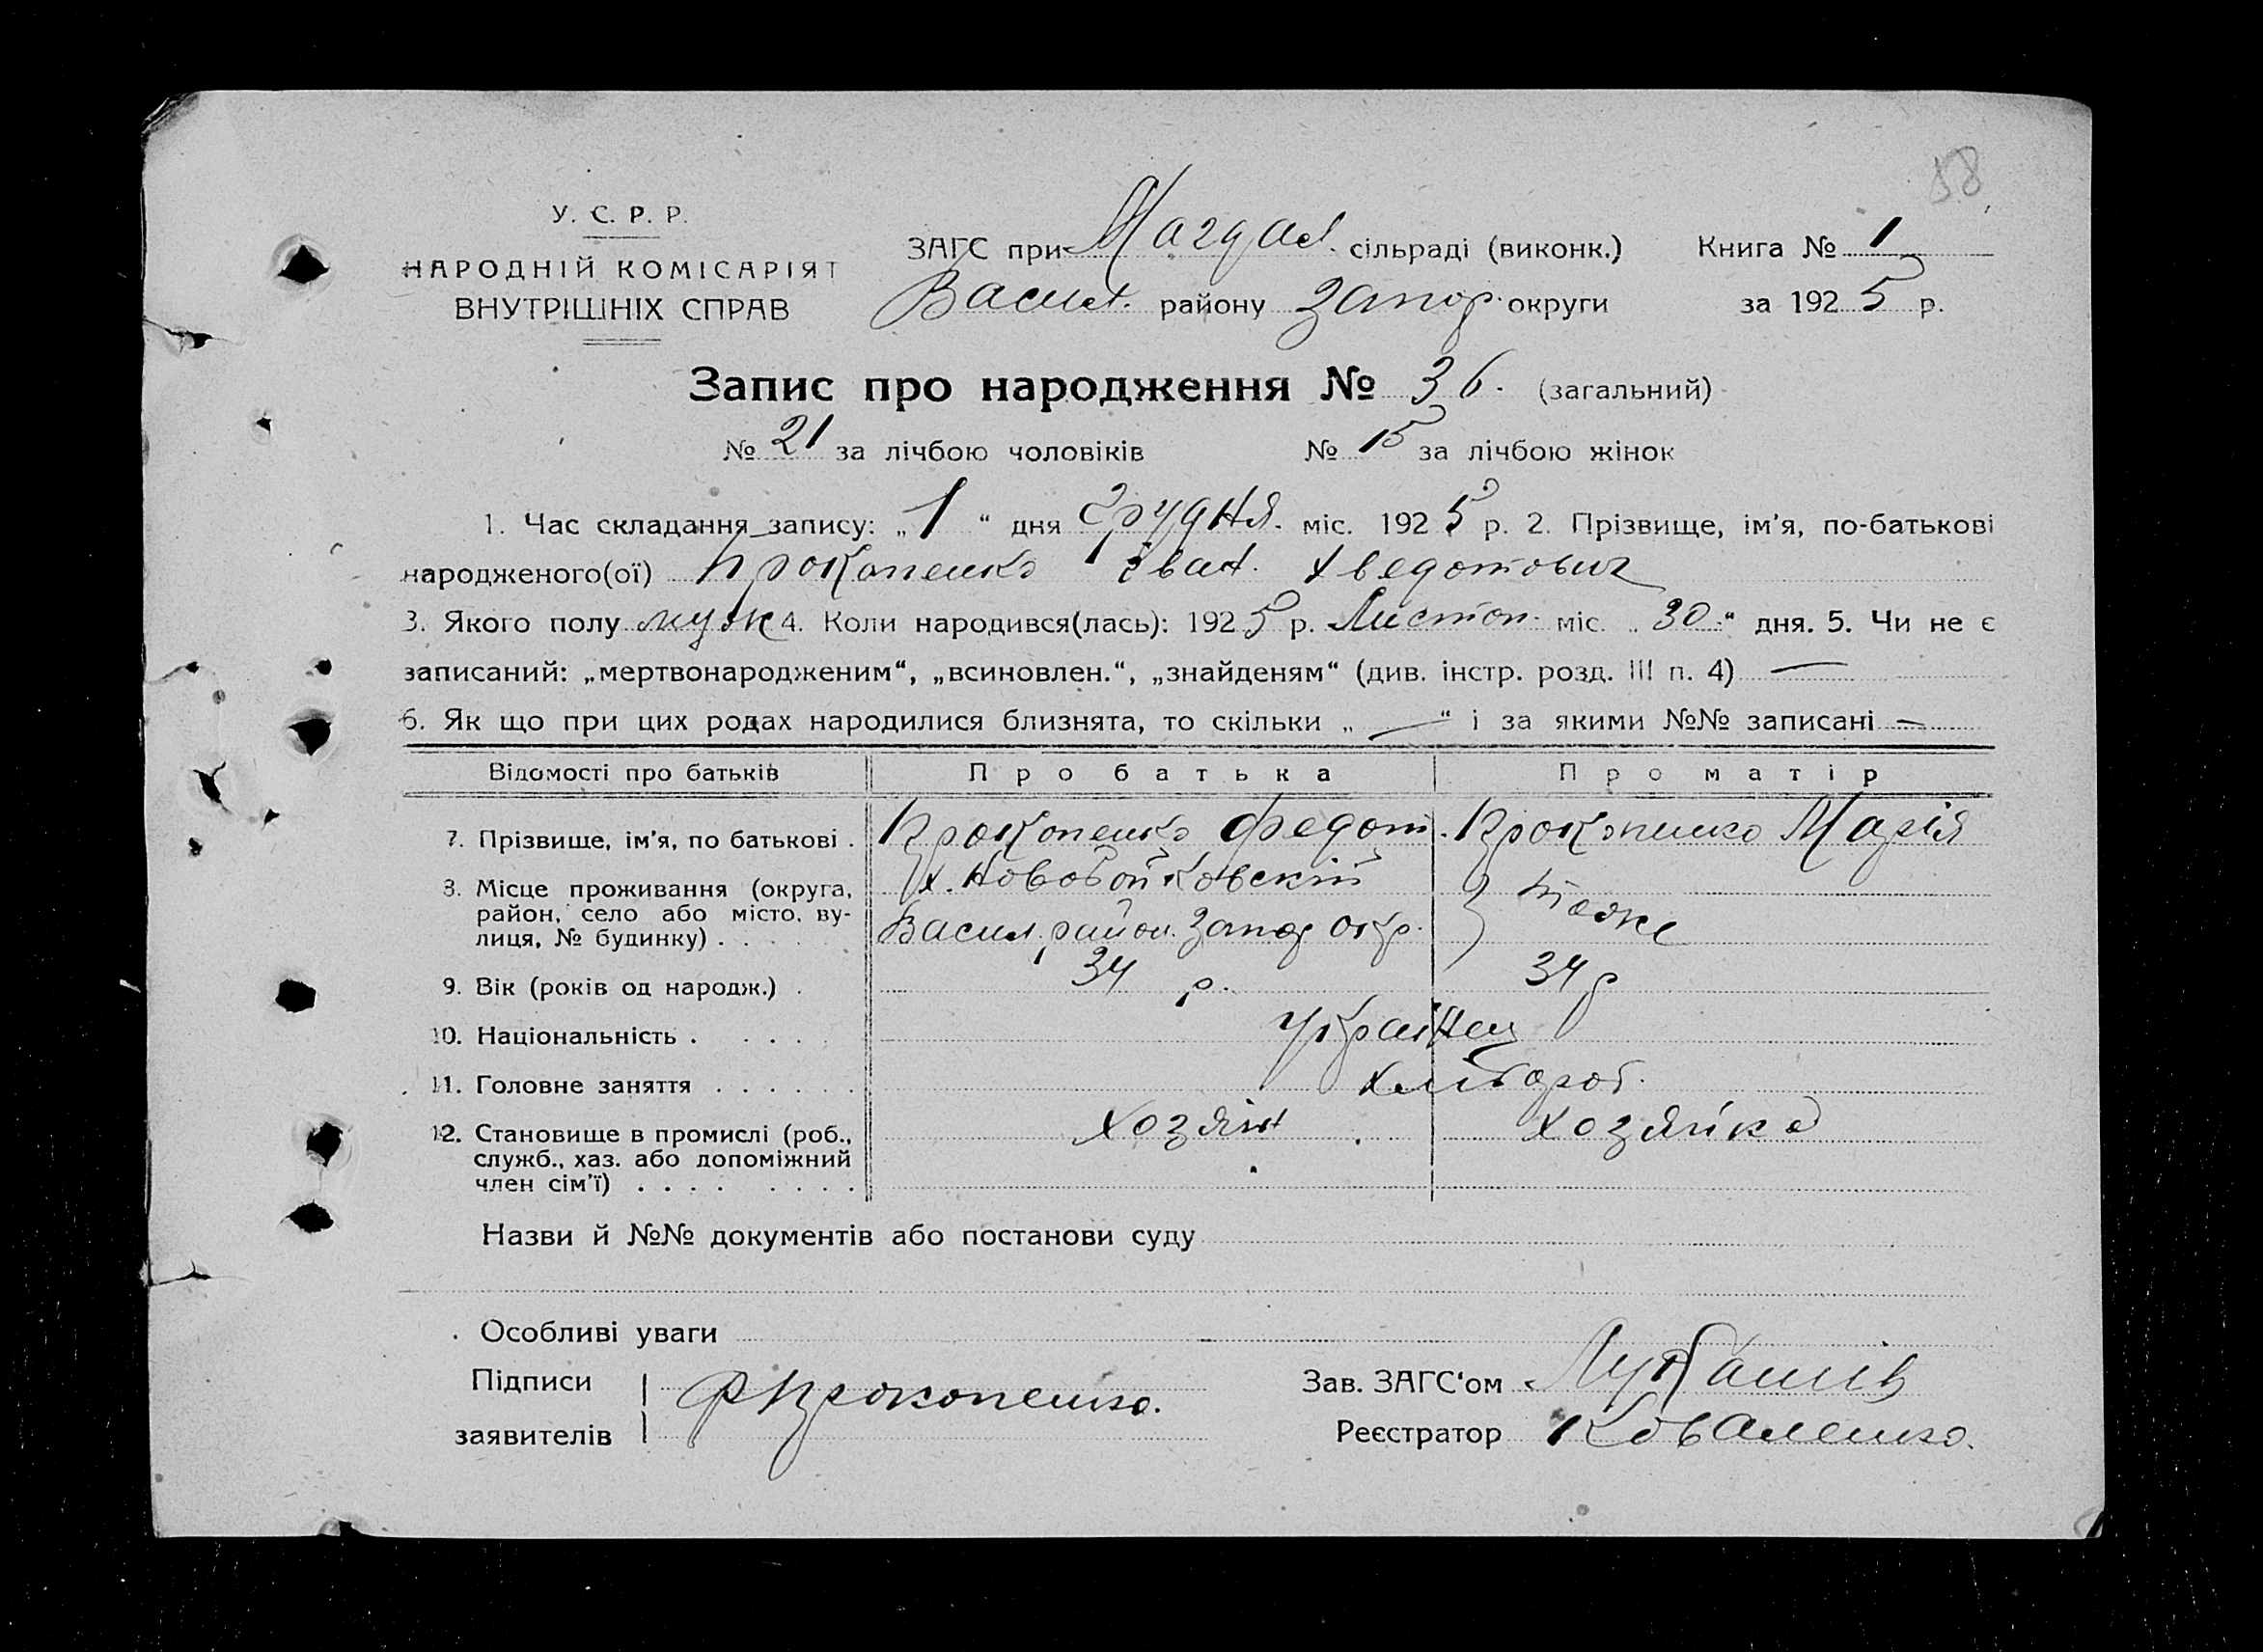 58
У. С. Р. Р.
НАРОДНІЙ КОМІСАРІЯТ
ВНУТРІШНІХ СПРАВ
ЗАГС при Магдал. сільраді (виконк.) Книга № 1
Васил. району Запор. округи за 1925 р.
Запис про народження № 36. (загальний)
№ 21 за лічбою чоловіків № 15 за лічбою жінок
1. Час складання запису: „1“ дня Грудня. міс. 1925 р. 2. Прізвище, ім'я, по-батькові
народженого(ої) Прокопенко Іван. Хведотович
3. Якого полу муж 4. Коли народився(лась): 1925 р. Листоп. міс. „30“ дня. 5. Чи не є
записаний: „мертвонародженим“, „всиновлен.“, „знайденям“ (див. інстр. розд. III п. 4) —
6. Як що при цих родах народилися близнята, то скільки „—“ і за якими №№ записані —
Відомості про батьків Про батька Про матір
7. Прізвище, ім'я, по батькові . Прокопенко Федот. Прокопенко Марія
8. Місце проживання (округа, х. Новобойковскій тоже
район, село або місто, ву-
лиця, № будинку) . . . . Васил. район. Запор окр.
9. Вік (років од народж.) . 34 р. 34 р
10. Національність . . . . . Українец
11. Головне заняття . . . . . . Хлібороб.
12. Становище в промислі (роб., Хозяін Хозяйка
служб., хаз. або допоміжний
член сім'ї) . . . . . . . .
Назви й №№ документів або постанови суду
Особливі уваги
Підписи
заявителів Ф Прокопенко.
Зав. ЗАГС'ом Лукашів
Реєстратор Коваленко.